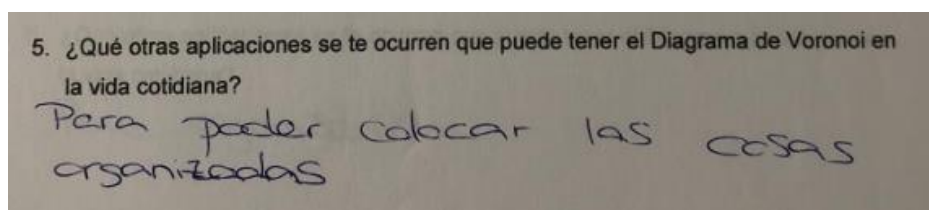 5. ¿Qué otras aplicaciones se te ocurren que puede tener el Diagrama de Voronoi en
la vida cotidiana?
Para poder colocar las cosas
organizadas